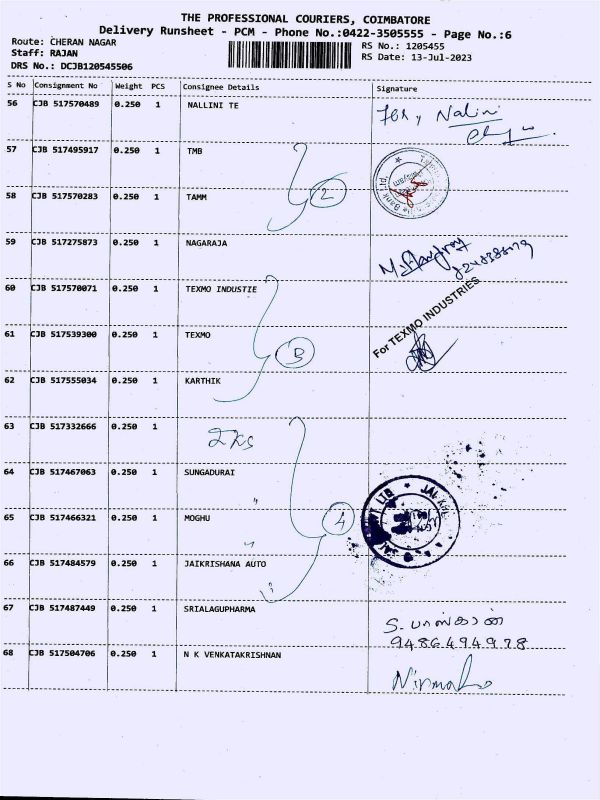 THE PROFESSIONAL COURIERS, COIMBATORE
Delivery Runsheet - PCM - Phone No.:0422-3505555 - Page No.:6
Route: CHERAN NAGAR RS No.: 1205455
Staff: RAJAN RS Date: 13-Jul-2023
DRS No.: DCJB120545506
S No Consignment No Weight PCS Consignee Details Signature
56 CJB 517570489 0.250 1 NALLINI TE
For, Nalini
57 CJB 517495917 0.250 1 TMB
2
58 CJB 517570283 0.250 1 TAMM
59 CJB 517275873 0.250 1 NAGARAJA
60 CJB 517570071 0.250 1 TEXMO INDUSTIE
For TEXMO INDUSTRIES
61 CJB 517539300 0.250 1 TEXMO
3
62 CJB 517555034 0.250 1 KARTHIK
63 CJB 517332666 0.250 1
2KS
64 CJB 517467063 0.250 1 SUNGADURAI
"
65 CJB 517466321 0.250 1 MOGHU 4
"
66 CJB 517484579 0.250 1 JAIKRISHANA AUTO
67 CJB 517487449 0.250 1 SRIALAGUPHARMA
S. பாஸ்கரன்
9486494978
68 CJB 517504706 0.250 1 N K VENKATAKRISHNAN
Nirmala